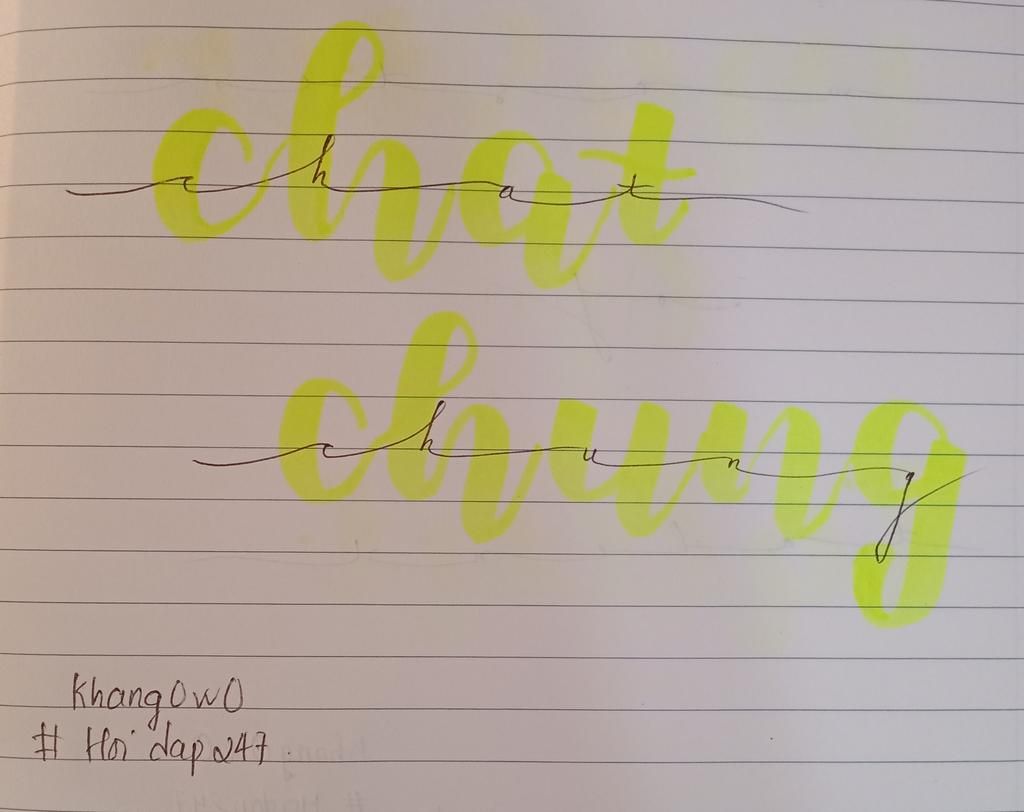 chat
chung
Khang OwO
# Hoi dap 247